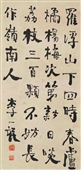 羅浮山下四時春盧
橘楊梅次第新日啖
荔枝三百顆不妨長
作嶺南人